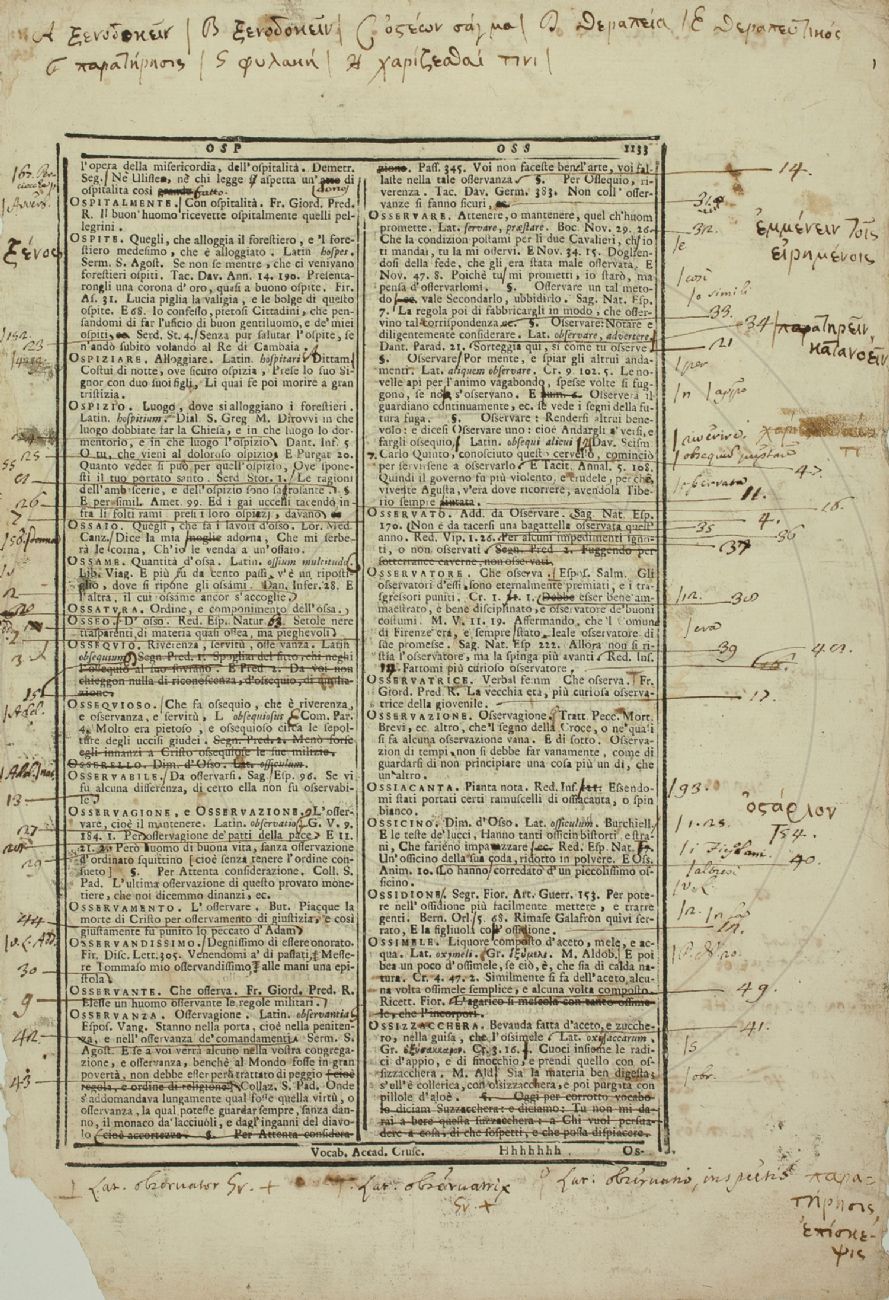 A ξενοδοκεῖν | B ξενοδοκεῖν | C ὀστέων σάγμα | D θεραπεία | E θεραπευτικός
G παρατήρησις | S φυλακή | H χαρίζεσθαί τινι |
OSP OSS 1133
l'opera della misericordia, dell'ospitalità. Demetr.
Seg. Nè Ulisse, nè chi legge aspetta un' di
ospitalità così
OSPITALMENTE. Con ospitalità. Fr. Giord. Pred.
R. Il buon'huomo ricevette ospitalmente quelli pel-
legrini.
OSPITE. Quegli, che alloggia il forestiero, e 'l fore-
stiero medesimo, che è alloggiato. Latin hospes.
Serm. S. Agost. Se non se mentre, che ci venivano
forestieri ospiti. Tac. Dav. Ann. 14. 190. Presenta-
rongli una corona d'oro, quasi a buono ospite. Fir.
As. 31. Lucia piglia la valigia, e le bolge di questo
ospite. E 68. Io confesso, pietosi Cittadini, che pen-
sandomi di far l'uficio di buon gentiluomo, e de' miei
ospiti, ec. Serd. St. 4. Senza pur salutar l'ospite, se
n'andò subito volando al Re di Cambaia,
OSPIZIARE. Alloggiare. Latin. hospitari Dittam.
Costui di notte, ove sicuro ospizia, Prese lo suo Si-
gnor con duo suoi figli, Li quai fe poi morire a gran
tristizia.
OSPIZIO. Luogo, dove si alloggiano i forestieri.
Latin. hospitium. Dial S. Greg M. Ditovvi in che
luogo dobbiate far la Chiesa, e in che luogo lo dor-
mentorio, e in che luogo l'ospizio Dant. Inf. 5
O tu, che vieni al doloroso ospizio. E Purgat 20.
Quanto veder si può per quell'ospizio, Ove spone-
sti il tuo portato santo. Serd Stor. 1. Le ragioni
dell'ambascerie, e dell'ospizio sono sagrosante. §
E per simil. Amet. 99. Ed i gai uccelli tacendo in-
fra li folti rami presi i loro ospizj, davano
OSSAIO. Quegli, che fa i lavori d'osso. Lor. Med
Canz. Dice la mia moglie adorna, Che mi serbe-
rà le corna, Ch'io le venda a un'ossaio.
OSSAME. Quantità d'ossa. Latin. ossium multitudo
Lib. Viag. E più su da cento passi, v'è un riposti-
glio, dove si ripone gli ossami. Dan. Infer. 28. E
l'altra, il cui ossame ancor s'accoglie.
OSSATURA. Ordine, e componimento dell'ossa.
OSSEO. D'osso. Red. Esp. Natur. 63. Setole nere
trasparenti, di materia quasi ossea, ma pieghevoli
OSSEQUIO. Riverenza, servitù, osservanza. Latin
obsequium. Segn Pred. 1. Spogliar del fitto, chi neghi
l'ossequio al suo sovrano. E Pred 2. Da voi non
chieggon nulla di riconoscenza, d'ossequio, di umilia-
zione.
OSSEQUIOSO. Che fa ossequio, che è riverenza,
e osservanza, e servitù, L obsequiosus Com. Par.
4. Molto era pietoso, e ossequioso circa le sepol-
ture degli uccisi giudei. Segn. Pred. 2. Menò forse
egli innanzi a Cristo ossequiose le sue milizie.
OSSERELLO. Dim. d'Osso. Lat. ossiculum.
OSSERVABILE. Da osservarsi. Sag. Esp. 96. Se vi
fu alcuna differenza, di certo ella non fu osservabi-
le
OSSERVAGIONE, e OSSERVAZIONE. L'osser-
vare, cioè il mantenere. Latin. observatio. G. V. 9.
184. 1. Per osservagione de' patti della pace. E 11.
21. 20 Però huomo di buona vita, sanza osservazione
d'ordinato squittino [cioè senza tenere l'ordine con-
sueto] §. Per Attenta considerazione. Coll. S.
Pad. L'ultima osservazione di questo provato mone-
tiere, che noi dicemmo dinanzi, ec.
OSSERVAMENTO. L'osservare. But. Piacque la
morte di Cristo per osservamento di giustizia, e così
giustamente fu punito lo peccato d'Adam
OSSERVANDISSIMO. Degnissimo di essere onorato.
Fir. Disc. Lett. 305. Venendomi a' dì passati, Messe-
re Tommaso mio osservandissimo, alle mani una epi-
stola
OSSERVANTE. Che osserva. Fr. Giord. Pred. R.
Elesse un huomo osservante le regole militari.
OSSERVANZA. Osservagione. Latin. observantia
Espos. Vang. Stanno nella porta, cioè nella peniten-
za, e nell'osservanza de' comandamenti. Serm. S.
Agost. E se a voi verrà alcuno nella vostra congrega-
zione, e osservanza, benchè al Mondo fosse in gran
povertà, non debbe esser però trattato di peggio [cioè
regola, e ordine di religione] Collaz. S. Pad. Onde
s'addomandava lungamente qual fosse quella virtù, o
osservanza, la qual potesse guardar sempre, sanza dan-
no, il monaco da' lacciuoli, e dagl'inganni del diavo-
lo [cioè accortezza. §. Per Attenta considera-
zione. Pass. 345. Voi non faceste bene l'arte, voi fal-
laste nella tale osservanza §. Per Ossequio, ri-
verenza. Tac. Dav. Germ. 383. Non coll'osser-
vanze si fanno sicuri, ec.
OSSERVARE. Attenere, o mantenere, quel ch'huom
promette. Lat. servare, præstare. Boc. Nov. 29. 26.
Che la condizion postami per li due Cavalieri, ch'io
ti mandai, tu la mi osservi. E Nov. 34. 15. Dogliendosi
della fede, che gli era stata male osservata. E
Nov. 47. 8. Poichè tu mi prometti, io starò, ma
pensa d'osservarlomi. §. Osservare un tal meto-
do ec. vale Secondarlo, ubbidirlo. Sag. Nat. Esp.
7. La regola poi di fabbricargli in modo, che osser-
vino tal corrispondenza ec. §. Osservare: Notare e
diligentemente considerare. Lat. observare, advertere
Dant. Parad. 21. Sorteggia quì, si come tu osserve
§. Osservare Per mente, e spiar gli altrui anda-
menti. Lat. aliquem observare. Cr. 9 102. 5. Le no-
velle api per l'animo vagabondo, spesse volte si fug-
gono, se non s'osservano. E num. 6. Osserverà il
guardiano continuamente, ec. se vede i segni della fu-
tura fuga. §. Osservare: Rendersi altrui bene-
volo: e dicesi Osservare uno: cioè Andargli a' versi, e
fargli ossequio. Latin. obsequi alicui Dav. Scism
7. Carlo Quinto, conosciuto questo cervello, cominciò
per servirsene a osservarlo E Tacit. Annal. 5. 108.
Quindi il governo fu più violento, e crudele, perchè
vivente Agusta, v'era dove ricorrere, avendola Tibe-
rio sempre aiutata.
OSSERVATO. Add. da Osservare. Sag. Nat. Esp.
170. Non è da tacersi una bagattella osservata quest'
anno. Red. Vip. 1. 26. Per alcuni impedimenti igno-
ti, o non osservati Segn. Pred. 2. Fuggendo per
sotterranee caverne, non osservati.
OSSERVATORE. Che osserva. Espos. Salm. Gli
osservatori d'essi, sono eternalmente premiati, e i tra-
sgressori puniti. Cr. 1. 1. Debbe esser bene am-
maestrato, e bene disciplinato, e osservatore de' buoni
costumi. M. V. 11. 19. Affermando, che 'l comune
di Firenze era, e sempre stato, leale osservatore di
sue promesse. Sag. Nat. Esp 222. Allora non si ri-
stia l'osservatore, ma la spinga più avanti Red. Ins.
Fattomi più curioso osservatore
OSSERVATRICE. Verbal femm Che osserva. Fr.
Giord. Pred R. La vecchia era, più curiosa osserva-
trice della giovenile.
OSSERVAZIONE. Osservagione. Tratt. Pecc. Mort.
Brevi, ec. altro, che 'l segno della Croce, o ne' quai
si fa alcuna osservazione vana. E di sotto. Osserva-
zion di tempi, non si debbe far vanamente, come di
guardarsi di non principiare una cosa più un dì, che
un'altro.
OSSIACANTA. Pianta nota. Red. Ins. 111. Essendo-
mi stati portati certi ramuscelli di ossiacanta, o spin
bianco.
OSSICINO. Dim. d'Osso. Lat. ossiculum. Burchiell.
E le teste de' lucci, Hanno tanti ossicin bistorti e stra-
ni, Che fariéno impazzare ec. Red. Esp. Nat. 7.
Un'ossicino della sua coda, ridotto in polvere. E Oss.
Anim. 10. Lo hanno corredato d'un piccolissimo os-
sicino.
OSSIDIONE. Segr. Fior. Art. Guerr. 153. Per pote-
re nell'ossidione più facilmente mettere, e trarre
genti. Bern. Orl. 5. 68. Rimase Galafron quivi ser-
rato, E la figliuola con' ossidione.
OSSIMELE. Liquore composto d'aceto, mele, e ac-
qua. Lat. oxymeli. Gr. ὀξύμελι. M. Aldob. E poi
bea un poco d'ossimele, se ciò, è, che sia di calda na-
tura. Cr. 4. 47. 2. Similmente si fa dell'aceto, alcu-
na volta ossimele semplice, e alcuna volta composito.
Ricett. Fior. L'agarico si mescola con tanto ossime-
le, che l'incorpori.
OSSIZZACCHERA. Bevanda fatta d'aceto, e zucche-
ro, nella guisa, che l'ossimele Lat. oxysaccarum.
Gr. ὀξυσάκχαρον. Cr. 3. 16. Cuoci insieme le radi-
ci d'appio, e di finocchio, e prendi quello con os-
sizzacchera. M. Ald. Sia la materia ben digesta:
s'ell'è collerica, con ossizzacchera, e poi purgata con
pillole d'aloè. §. Oggi per corrotto vocabo-
lo diciam Suzzacchera: e diciamo: Tu non mi da-
rai a bere questa suzzacchera: a Chi vuol persua-
dere a cosa, di che sospetti, e che possa dispiacere.
Vocab. Accad. Crusc. Hhhhhhh Os-
ξένος
23
25
26
3
15
13
27
29
44
30
9
42
43
14.
32.
ἐμμένειν τοῖς
εἰρημένοις
33.
34 παρατηρεῖν
κατανοεῖν
21
47.
11.
4. 16.
35 36
37
30
39 401
17.
193.
ὀστάριον
154.
40.
49.
41.
Lat. observator Gr. +
Lat. observatrix
Gr. +
Lat. observatio, inspectio παρα-
τήρησις
ἐπίσκε-
ψις